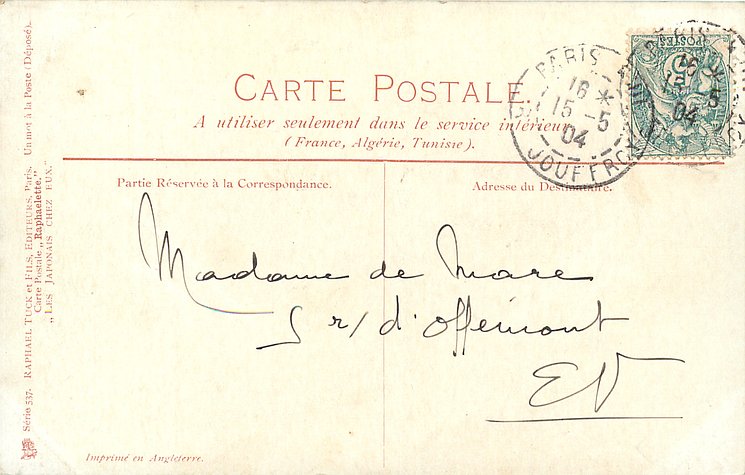 CARTE POSTALE.
A utiliser seulement dans le service intérieur
(France, Algérie, Tunisie).
Partie Réservée à la Correspondance.
Adresse du Destinataire.
Madame de Mare
5 r/ d'Offémont
EV
Imprimé en Angleterre.
Série 537. RAPHAEL TUCK et FILS, EDITEURS, Paris. Un mot à la Poste (Déposé).
Carte Postale „Raphaelette."
„LES JAPONAIS CHEZ EUX."
PARIS
16
15 - 5
04
JOUFFROY
POSTES
5
PARIS
16
15 5
04